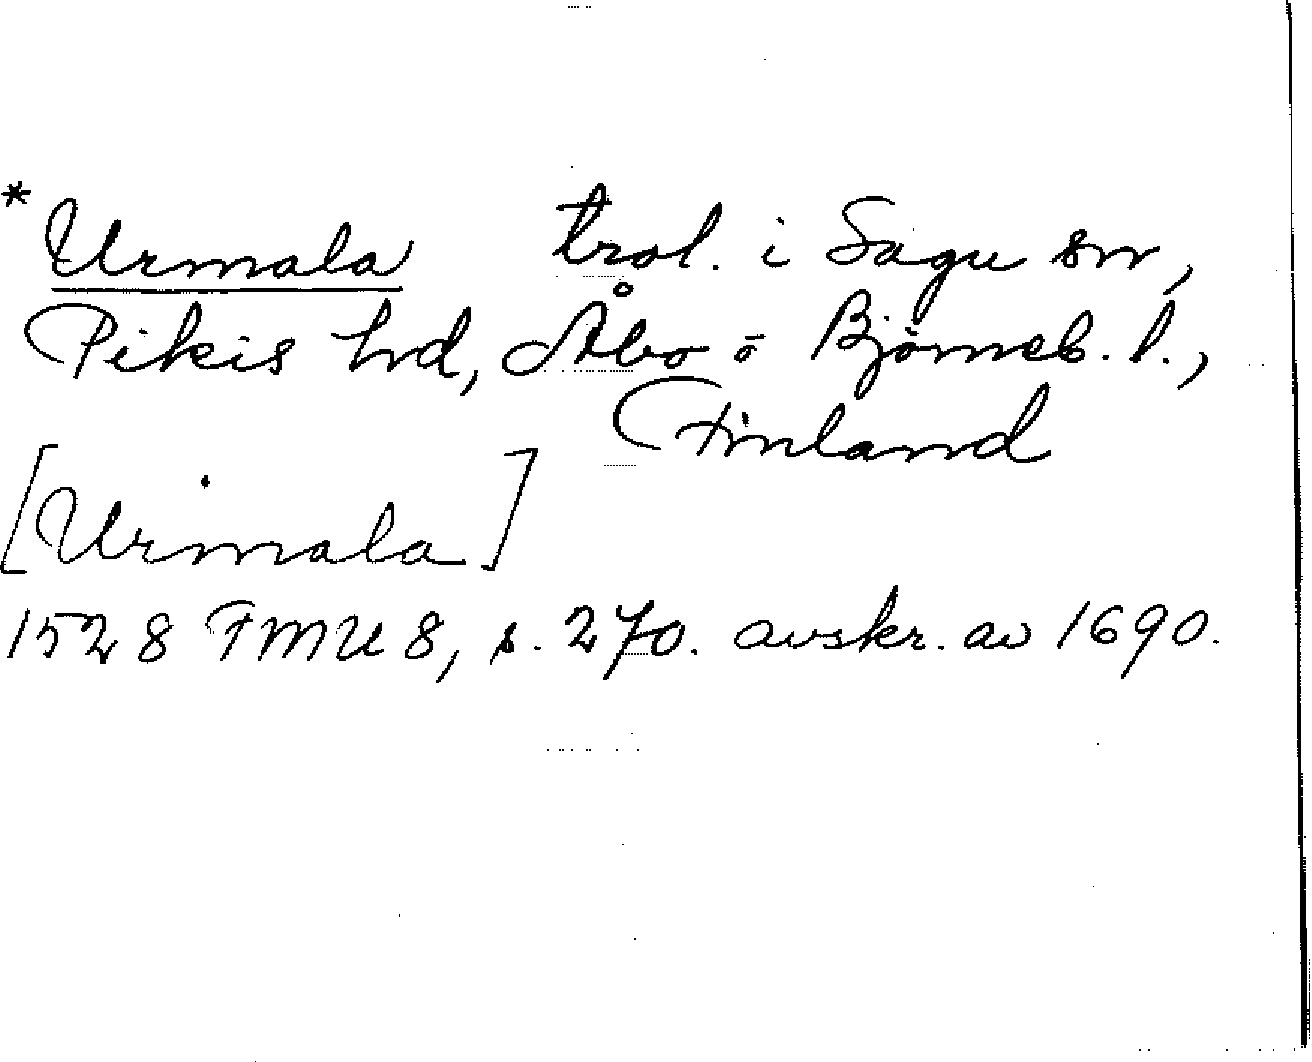 * Urmala trol. i Sagu sn,
Pikis hd, Åbo o Björneb. l.,
Finland
[Urmala]
1528 FMU 8, s. 270. avskr. av 1690.